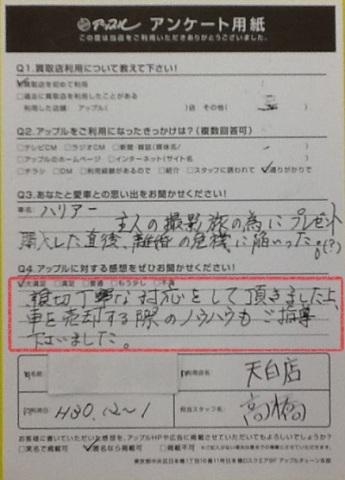 アップル アンケート用紙
この度は当店をご利用いただきありがとうございました。
Q1.買取店利用について教えて下さい!
買取店を初めて利用
過去に買取店を利用したことがある
利用した店舗 アップル( )店 その他( )
Q2.アップルをご利用になったきっかけは?(複数回答可)
テレビCM ラジオCM 新聞・雑誌(媒体名/ )
アップルのホームページ インターネット(サイト名 )
チラシ DM 利用経験があるので 紹介 スタッフに誘われて 通りがかりで
Q3.あなたと愛車との思い出をお聞かせください!
車名: ハリアー 主人の撮影旅の為にプレゼント
購入した直後、離婚の危機に陥いった。(?)
Q4.アップルに対する感想をぜひお聞かせください!
大満足 満足 普通 もう少し 不満
親切丁寧な対応をして頂きました上、
車を売却する際のノウハウもご指導
下さいました。
ご利用店名 天白店
ご利用日 H30.12~1
担当スタッフ名 高橋
お客様に書いていただいた感想を、アップルHPや広告に掲載させていただいてもよろしいでしょうか?
実名で掲載可 匿名なら掲載可 掲載不可